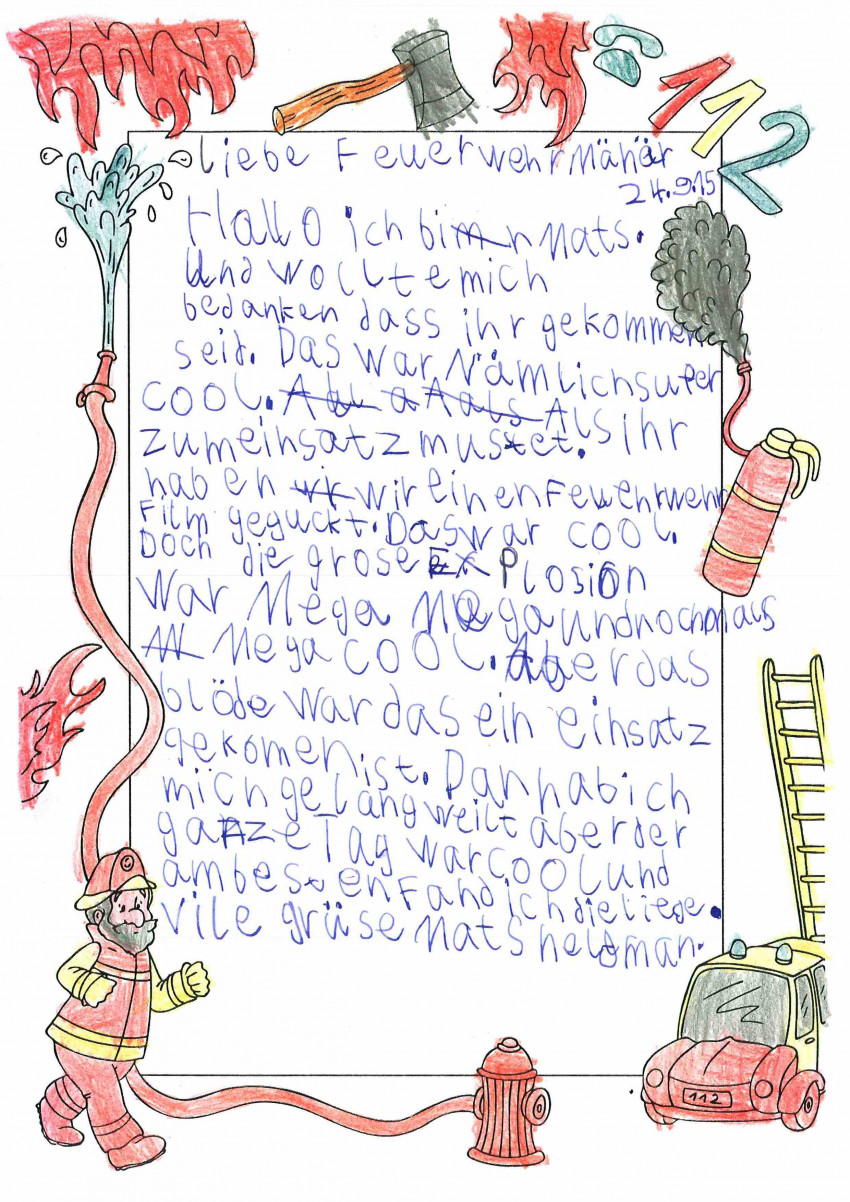 112
Liebe Feuerwehrmänär
24.9.15
Hallo ich bin Mats.
Und wollte mich
bedanken dass ihr gekommen
seit. Das war Nämlich super
COOL. Als ihr
zum einsatz mustet.
haben wir einen Feuehrwehr
Film geguckt. Das war COOL.
Doch die grose Explosion
War Mega Mega und nochmals
Mega COOL. Aber das
blöde war das ein einsatz
gekomen ist. Dan hab ich
mich gelangweilt aber der
ganze Tag war COOL und
am besten fand ich die liege.
Vile grüse Mats heldman.
112